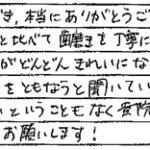 き,本当にありがとうご
と比べて歯磨きを丁寧に
がどんどんきれいにな
をともなうと聞いてい
ということもなく安
お願いします!